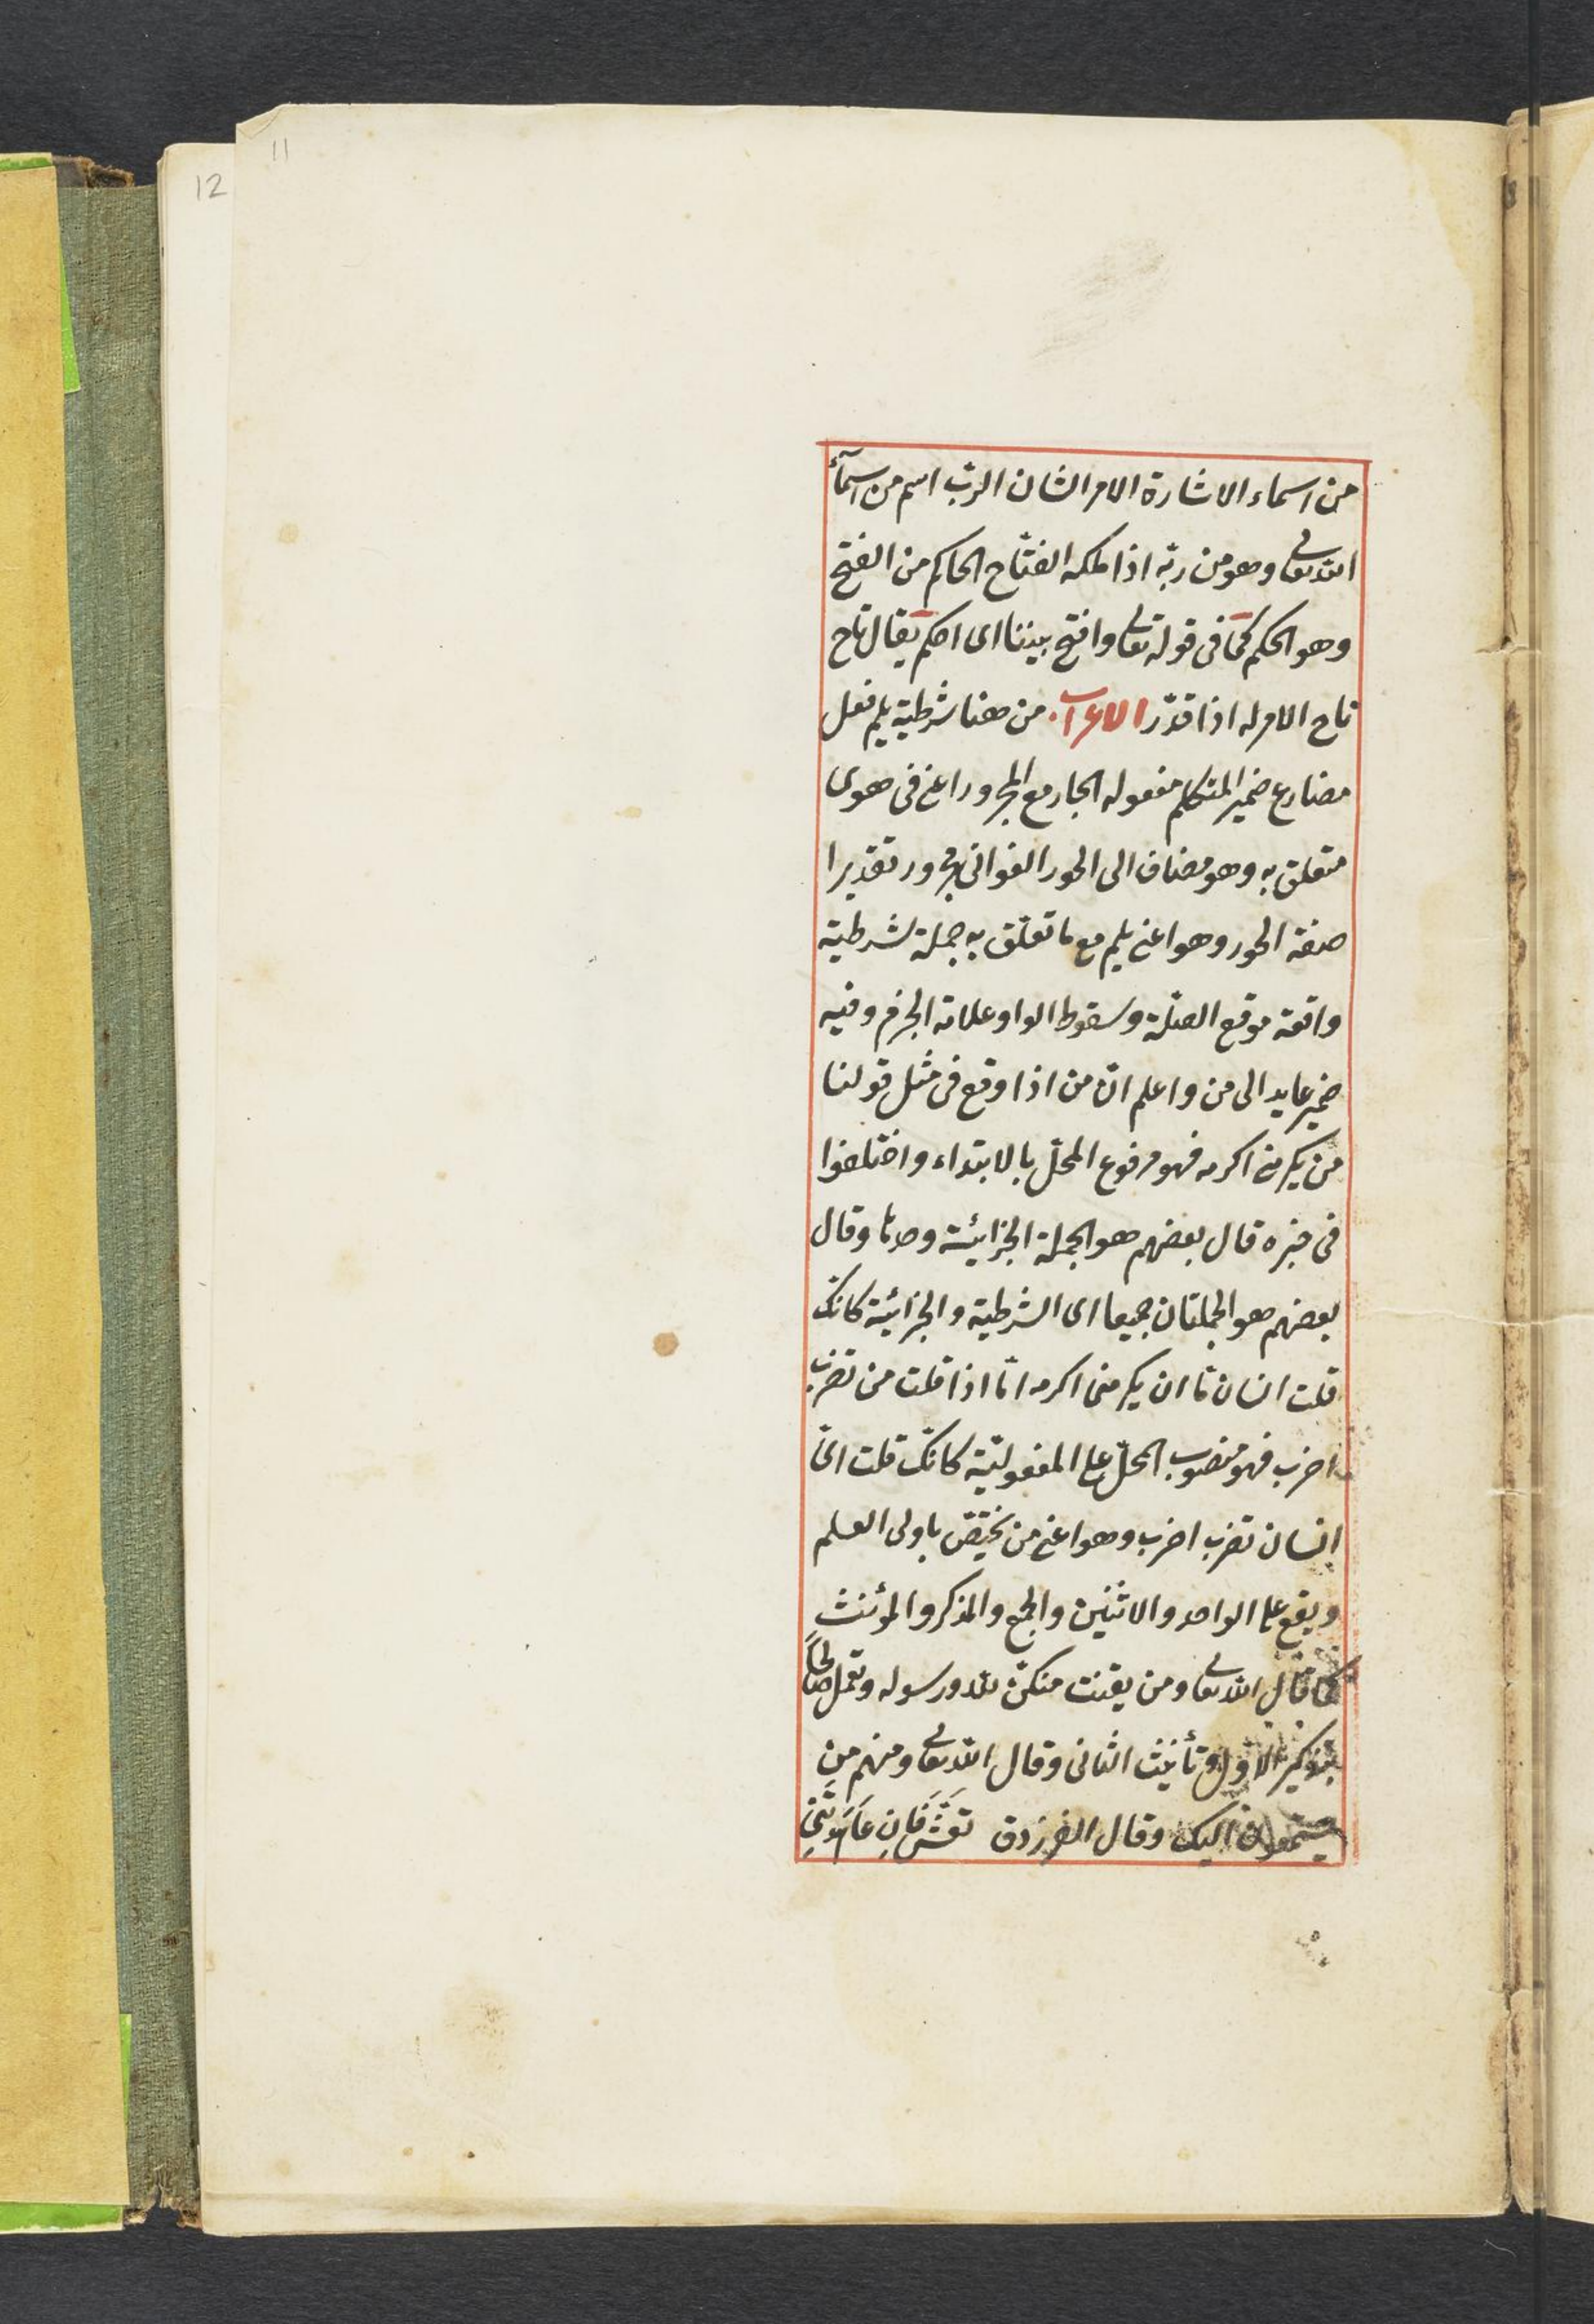 11
12
من اسماء الاشارة الامر الشان الرب اسم من اسمآء
الله تعالى وهو من ربّه اذا ملكه الفتّاح الحاكم من الفتح
وهو الحكم كما فى قوله تعالى وافتح بيننا اى احكم يقال تاح
تاح الامر له اذا قدّر الاعراب من هنا شرطية يلم فعل
مضارع ضمير المتكلم مفعوله الجار مع المجرور اعنى فى هوى
متعلق به وهو مضاف الى الحور الغوانى مجرور تقديرا
صفة الحور وهو اعنى يلم مع ما تعلّق به جملة شرطية
واقعة موقع الصلة وسقوط الواو علامة الجزم وفيه
ضمير عايد الى من واعلم انّ من اذا وقع فى مثل قولنا
من يكرمنى اكرمه فهو مرفوع المحلّ بالابتداء واختلفوا
فى خبره قال بعضهم هو الجملة الجزائية وحدها وقال
بعضهم هو الجملتان جميعا اى الشرطية والجزائية كانك
قلت انسان ما ان يكرمنى اكرمه امّا اذا قلت من تضرب
اضرب فهو منصوب المحلّ على المفعوليّة كانك قلت اىّ
انسان تضرب اضرب وهو اعنى من يختصّ باولى العلم
ويقع على الواحد والاثنين والجمع والمذكر والمؤنث
كما قال الله تعالى ومن يقنت منكنّ لله ورسوله وتعمل صالحاً
بتذكير الاول وتأنيث الثانى وقال الله تعالى ومنهم من
يستمعون اليك وقال الفرزدق تعشَّ فَإن عَاهَدتَنِى